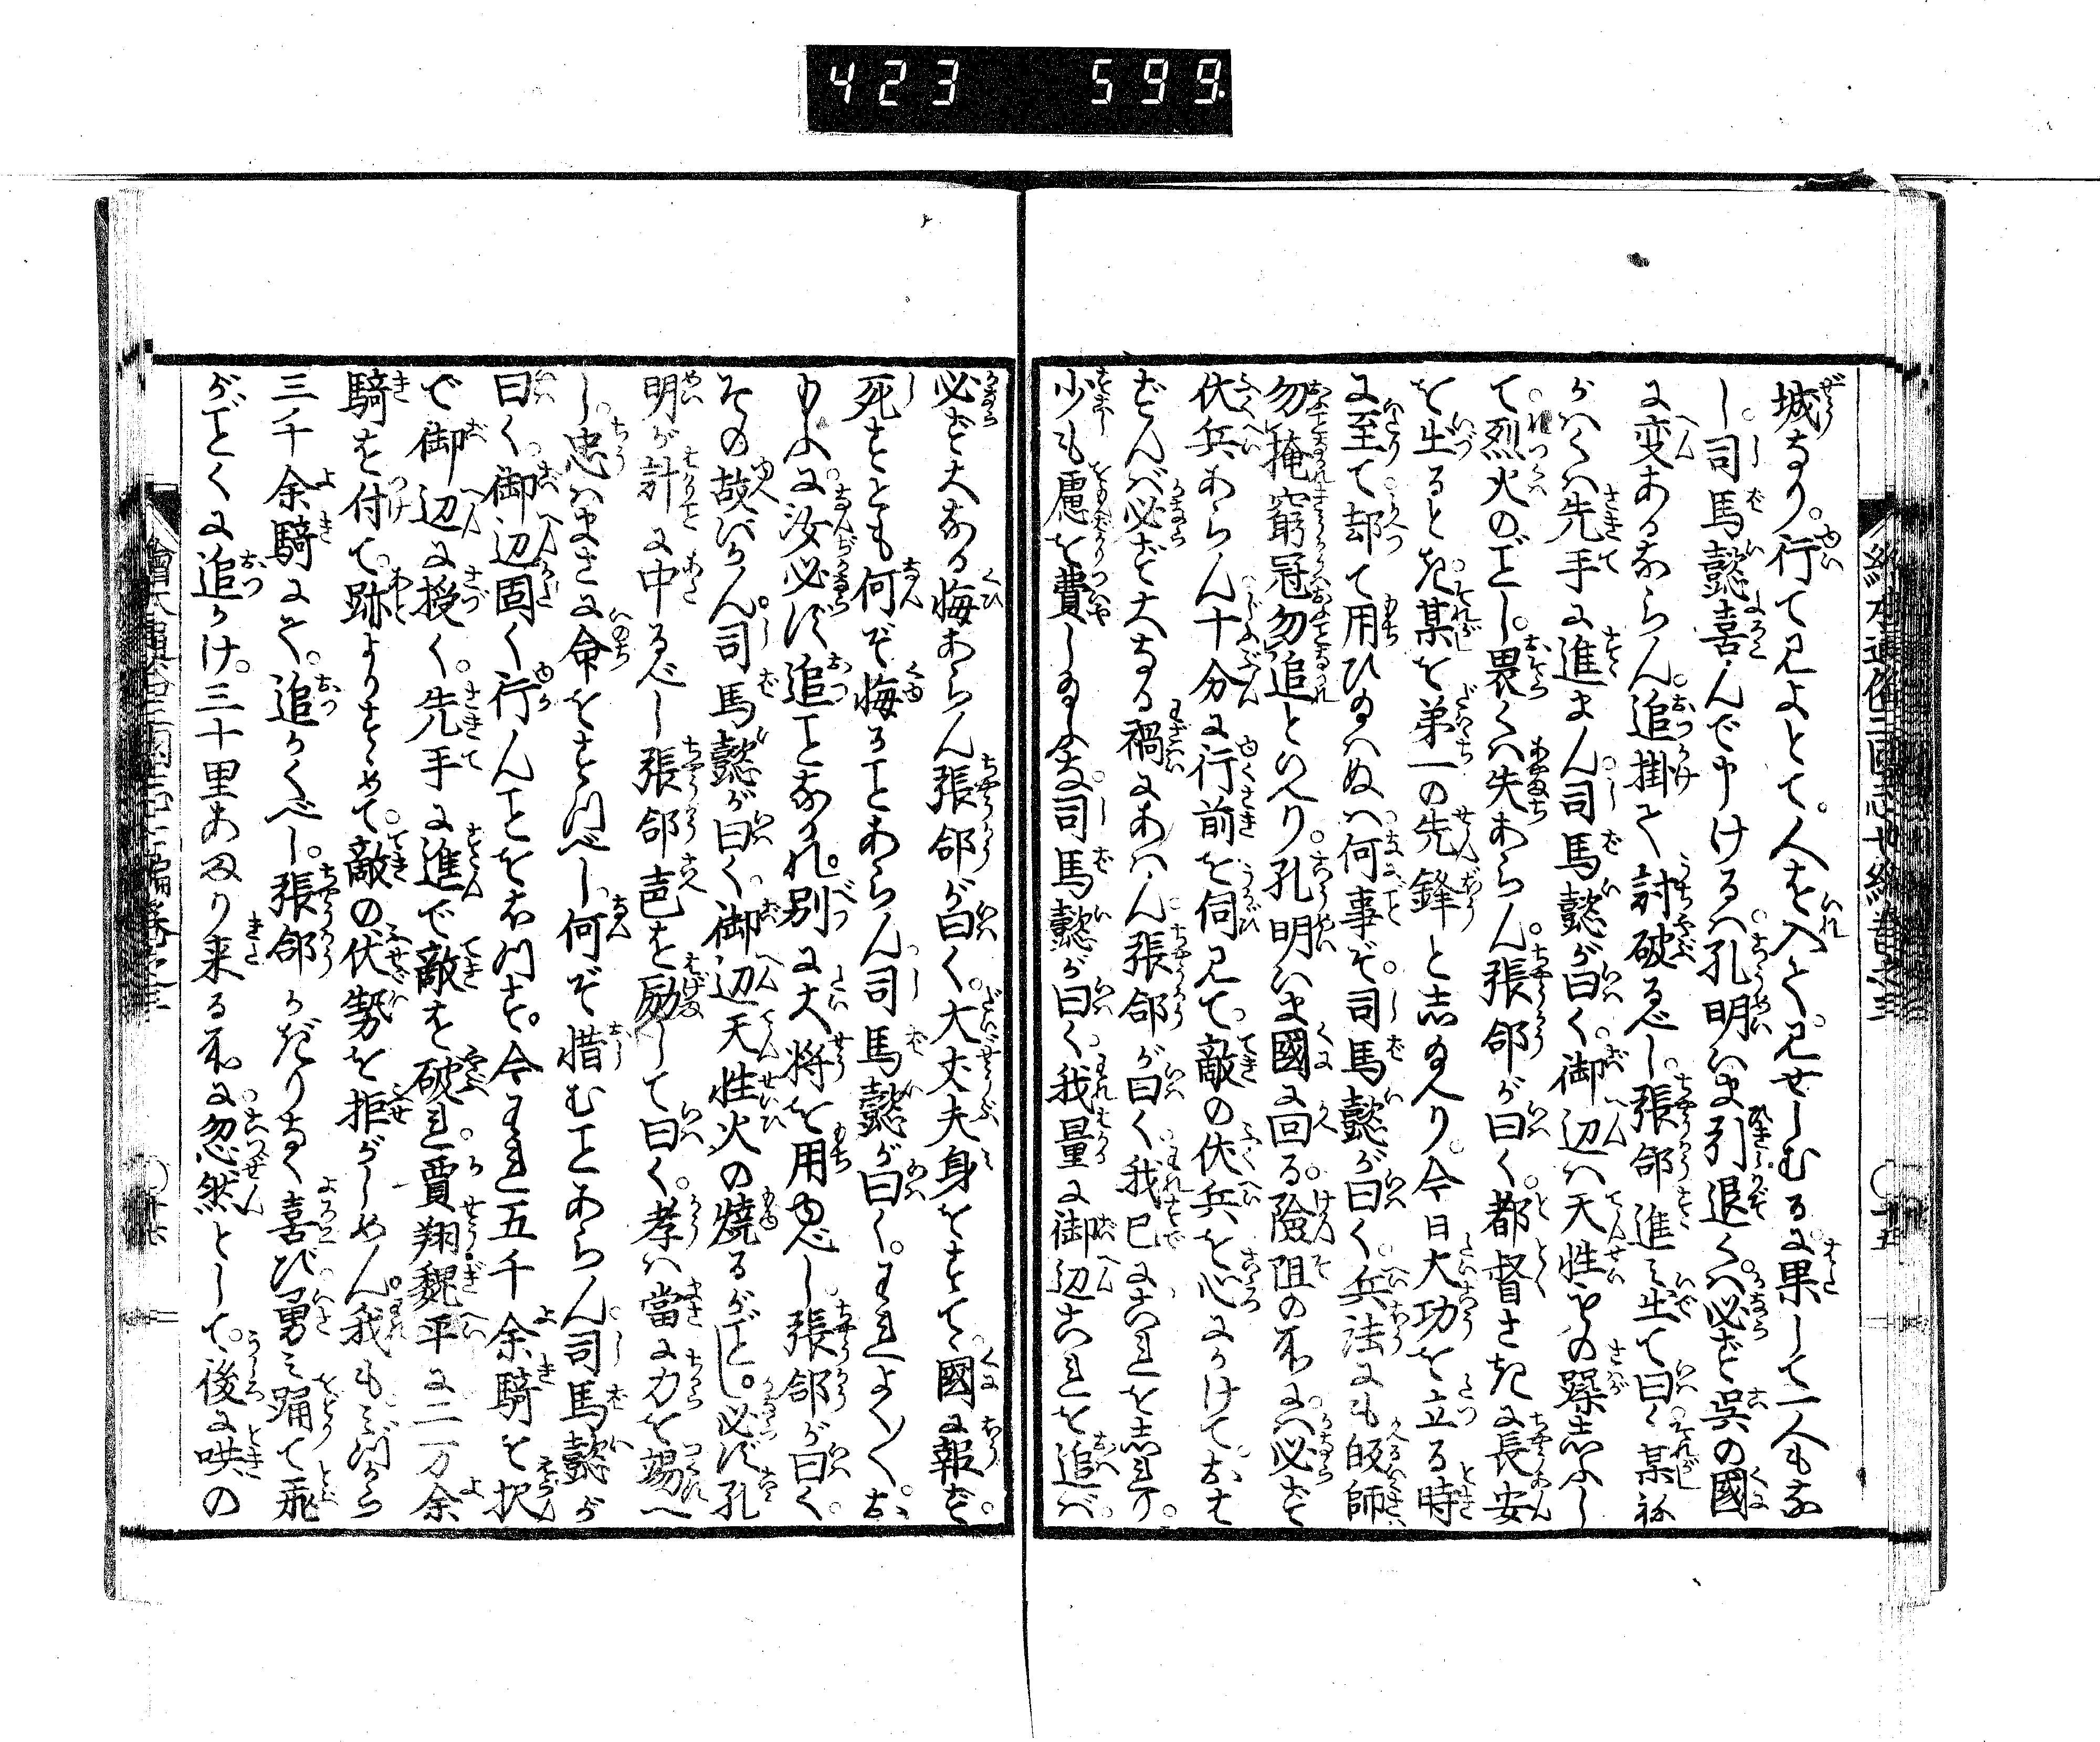 423 599.
城なり。行て見よとて。人を入て。見せしむるに果して一人もな
し。司馬懿喜んで申けるハ。孔明いま引退くハ。必ず呉の國
に変あるならん。追掛て討破るべし。張郃進ミ出て曰く某願
ハくハ先手に進まん。司馬懿が曰く。御辺ハ天性その躁しふし
て。烈火のごとし。畏くハ失あらん。張郃が曰く。都督さきに長安
を出るとき。某を第一の先鋒と志給へり。今日大功を立る時
に至て。却て用ひ給ハぬハ。何事ぞ。司馬懿が曰く。兵法にも皈師
勿掩窮冦勿追といへり。孔明いま國に回る。險阻の所にハ。必ず
伏兵あらん。十分に行前を伺見て。敵の伏兵を心にかけて。おせ
ずんバ必ず大なる禍にあハん。張郃が曰く。我已にこれを志れり。
少も慮を費し給ふな。司馬懿が曰く。我量に御辺これを追バ。
必ず大なる悔あらん。張郃が曰く。大丈夫身をすてゝ。國に報ず。
死すとも何ぞ悔ることあらん。司馬懿が曰く。われよく〳〵お
もふに。汝必ず追ことなかれ。別に大将を用ゆべし。張郃が曰く。
その故いかん。司馬懿が曰く。御辺天性火の燒るがごとし。必ず孔
明が計に中るべし。張郃声を励して曰く。孝ハ當に力を竭べ
し。忠ハまさに命をすつべし。何ぞ惜むことあらん。司馬懿が
曰く。御辺固く行んことをおもハヾ。今われ五千余騎を択
で御辺に授く。先手に進で敵を破れ。賈翔魏平に二万余
騎を付て。跡よりすゝめて。敵の伏勢を拒がしめん。我もミづから
三千余騎にて。追かくべし。張郃かぎりなく喜び。勇ミ踊て飛
がごとくに追かけ。三十里あまり来る所に。忽然として。後に哄の